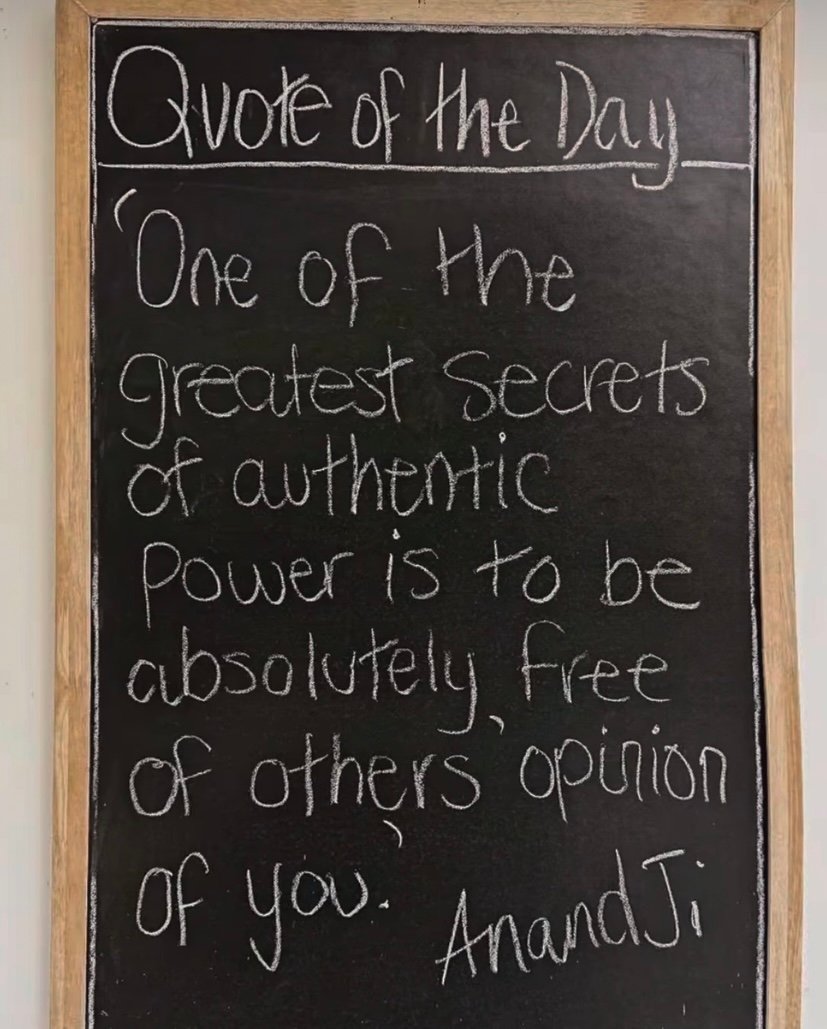 Quote of the Day
'One of the
greatest secrets
of authentic
power is to be
absolutely free
of others' opinion
of you.'
Anand Ji